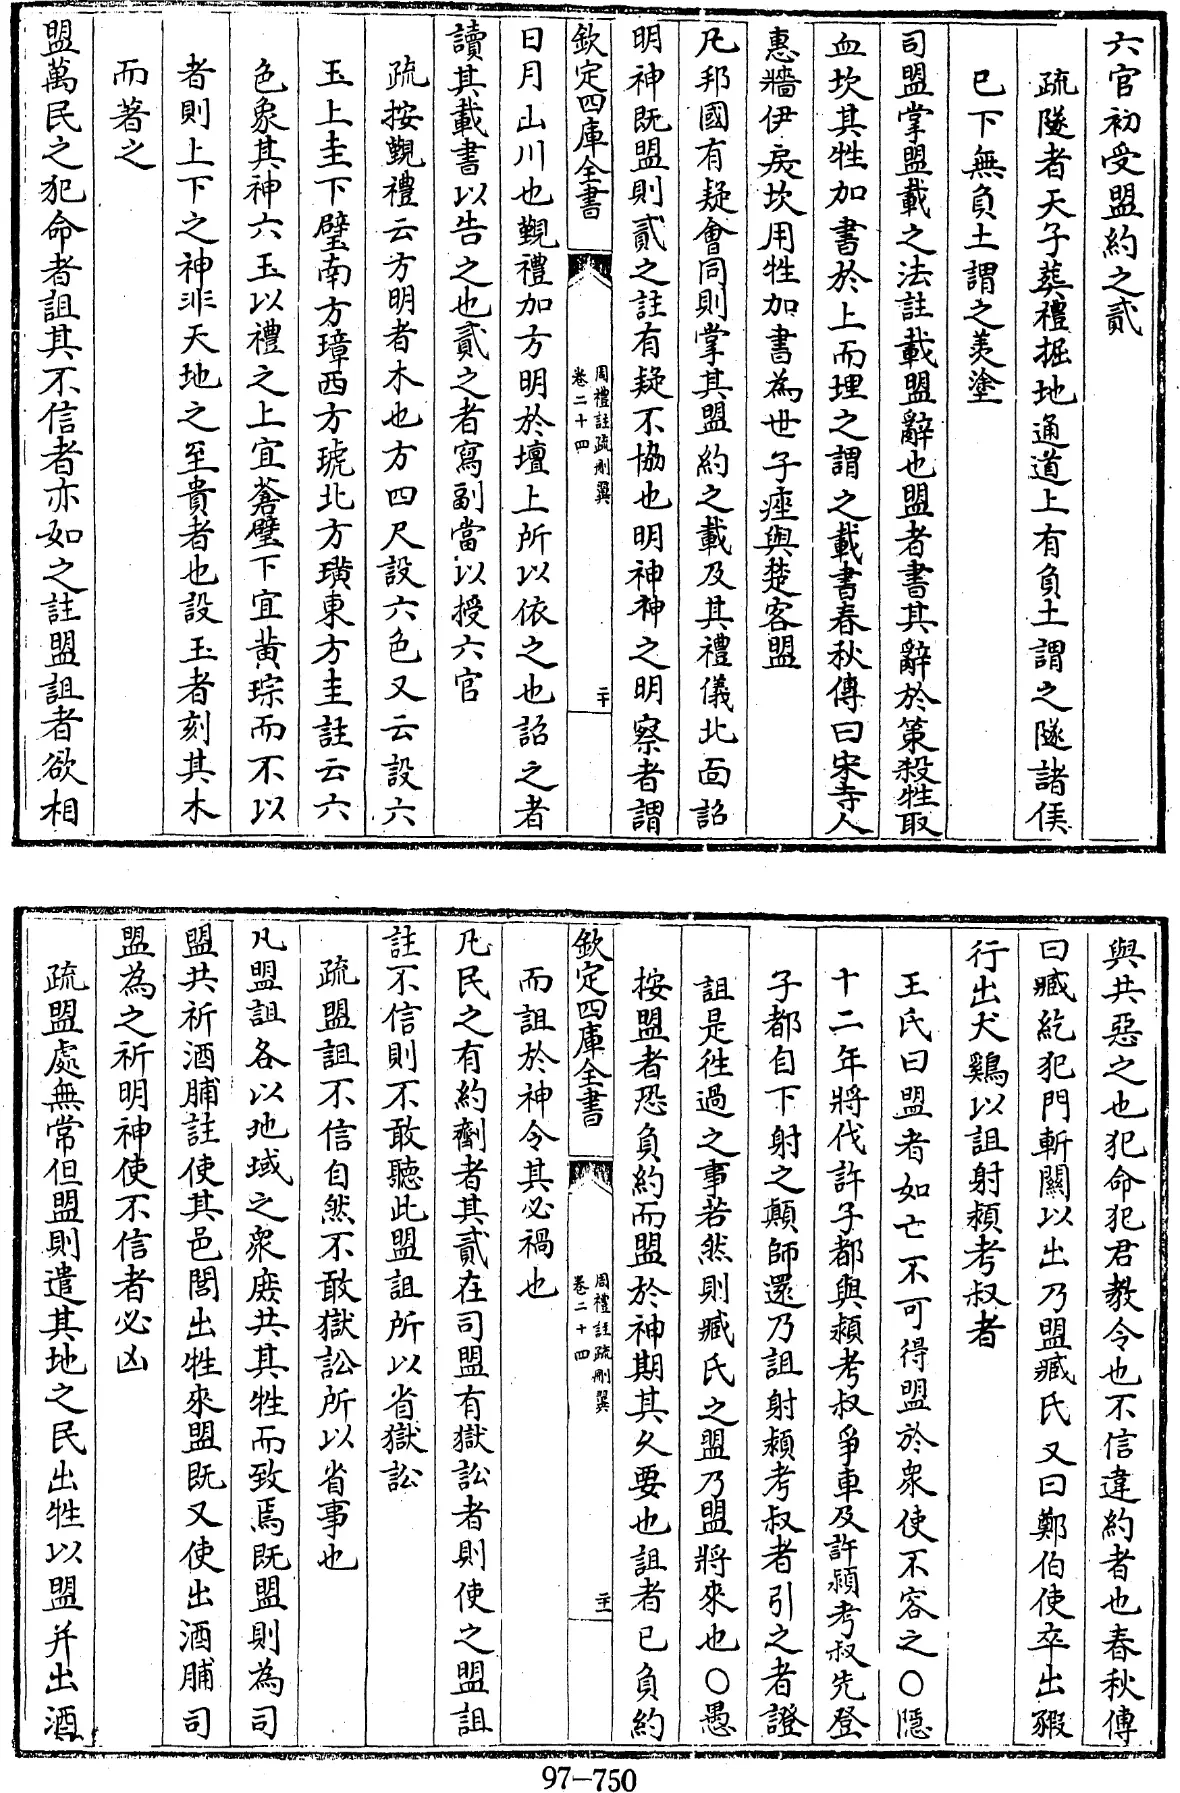 六官初受盟約之貳
疏隧者天子葬禮掘地通道上有負土謂之隧諸侯
已下無負土謂之羨塗
司盟掌盟載之法註載盟辭也盟者書其辭於策殺牲取
血坎其牲加書於上而埋之謂之載書春秋傳曰宋寺人
惠牆伊戾坎用牲加書為世子痤與楚客盟
凡邦國有疑會同則掌其盟約之載及其禮儀北面詔
明神既盟則貳之註有疑不協也明神神之明察者謂
欽定四庫全書
周禮註疏刪翼
卷二十四
二十
日月山川也覲禮加方明於壇上所以依之也詔之者
讀其載書以告之也貳之者寫副當以授六官
疏按覲禮云方明者木也方四尺設六色又云設六
玉上圭下璧南方璋西方琥北方璜東方圭註云六
色象其神六玉以禮之上宜蒼璧下宜黄琮而不以
者則上下之神非天地之至貴者也設玉者刻其木
而著之
盟萬民之犯命者詛其不信者亦如之註盟詛者欲相
與共惡之也犯命犯君教令也不信違約者也春秋傳
曰臧紇犯門斬關以出乃盟臧氏又曰鄭伯使卒出豭
行出犬鷄以詛射頴考叔者
王氏曰盟者如亡不可得盟於衆使不容之○隠
十二年將代許子都與頴考叔爭車及許頴考叔先登
子都自下射之顛師還乃詛射頴考叔者引之者證
詛是徃過之事若然則臧氏之盟乃盟將來也○愚
按盟者恐負約而盟於神期其久要也詛者已負約
欽定四庫全書
周禮註疏刪翼
卷二十四
二十一
而詛於神令其必禍也
凡民之有約劑者其貳在司盟有獄訟者則使之盟詛
註不信則不敢聽此盟詛所以省獄訟
疏盟詛不信自然不敢獄訟所以省事也
凡盟詛各以地域之衆庶共其牲而致焉既盟則為司
盟共祈酒脯註使其邑閭出牲來盟既又使出酒脯司
盟為之祈明神使不信者必凶
疏盟處無常但盟則遣其地之民出牲以盟并出酒
97-750